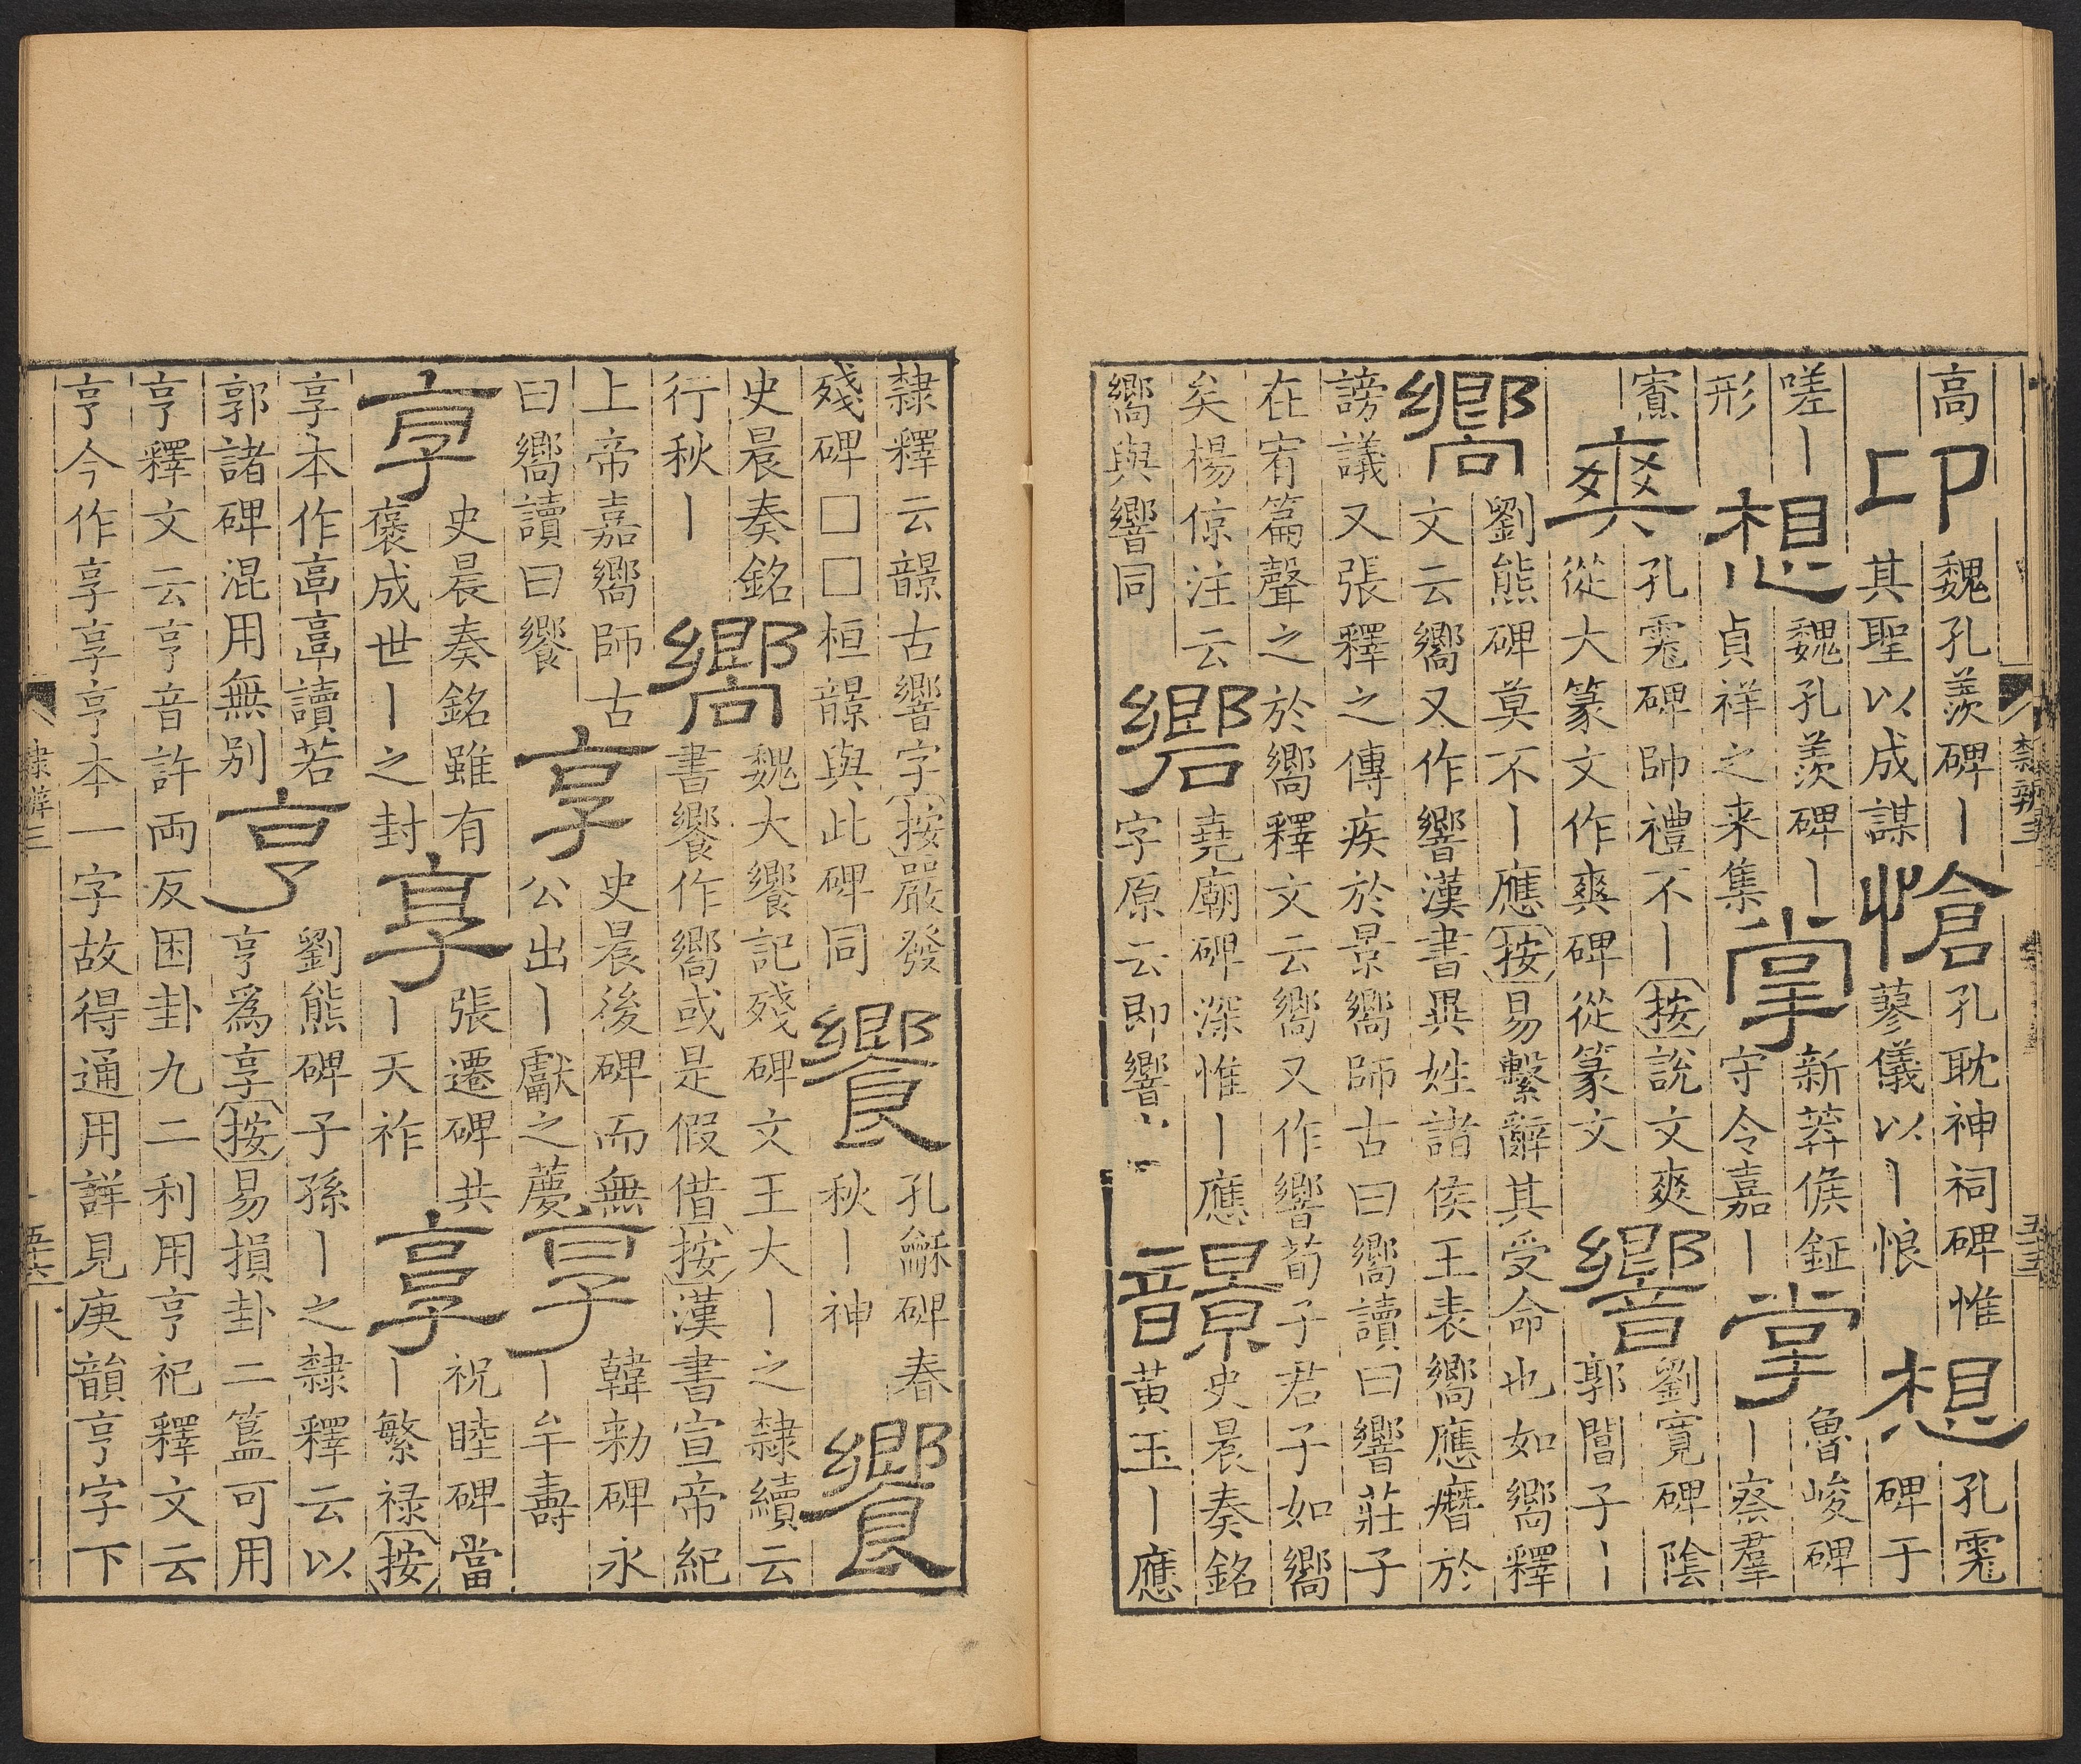 隸辨三 五十五
高
卬
魏孔羨碑丨
其聖以成謀
愴
孔耽神祠碑惟
蓼儀以丨悢
想
孔彪
碑于
嗟丨
形
想
魏孔羨碑丨
貞祥之来集
掌
新莽侯鉦
守令嘉丨
掌
魯峻碑
丨察羣
寮
爽
孔彪碑帥禮不丨按說文爽
從大篆文作爽碑從篆文
響
劉寬碑陰
郭誾子丨
嚮
劉熊碑莫不丨應按易繫辭其受命也如嚮釋
文云嚮又作響漢書異姓諸侯王表嚮應㬱於
謗議又張釋之傳疾於景嚮師古曰嚮讀曰響莊子
在宥篇聲之於嚮釋文云嚮又作響荀子君子如嚮
矣楊倞注云
嚮與響同
堯廟碑深惟丨應
字原云即響
䪫
史晨奏銘
黃玉丨應
隸釋云䪫古響字按嚴發
殘碑□□桓䪫與此碑同
饗
孔龢碑春
秋丨神
饗
史晨奏銘
行秋丨
嚮
魏大饗記殘碑文王大丨之隸續云
書饗作嚮或是假借按漢書宣帝紀
上帝嘉嚮師古
曰嚮讀曰饗
享
史晨後碑而無
公出丨獻之薆
享
韓勑碑永
丨牟壽
享
史晨奏銘雖有
褒成世丨之封
享
張遷碑共
丨天祚
享
祝睦碑當
丨繁禄按
享本作亯亯讀若
郭諸碑混用無别
亨
劉熊碑子孫丨之隸釋云以
亨爲享按易損卦二簋可用
亨釋文云亨音許兩反困卦九二利用亨祀釋文云
亨今作享享亨本一字故得通用詳見庚韻亨字下
隸辨三 五十六